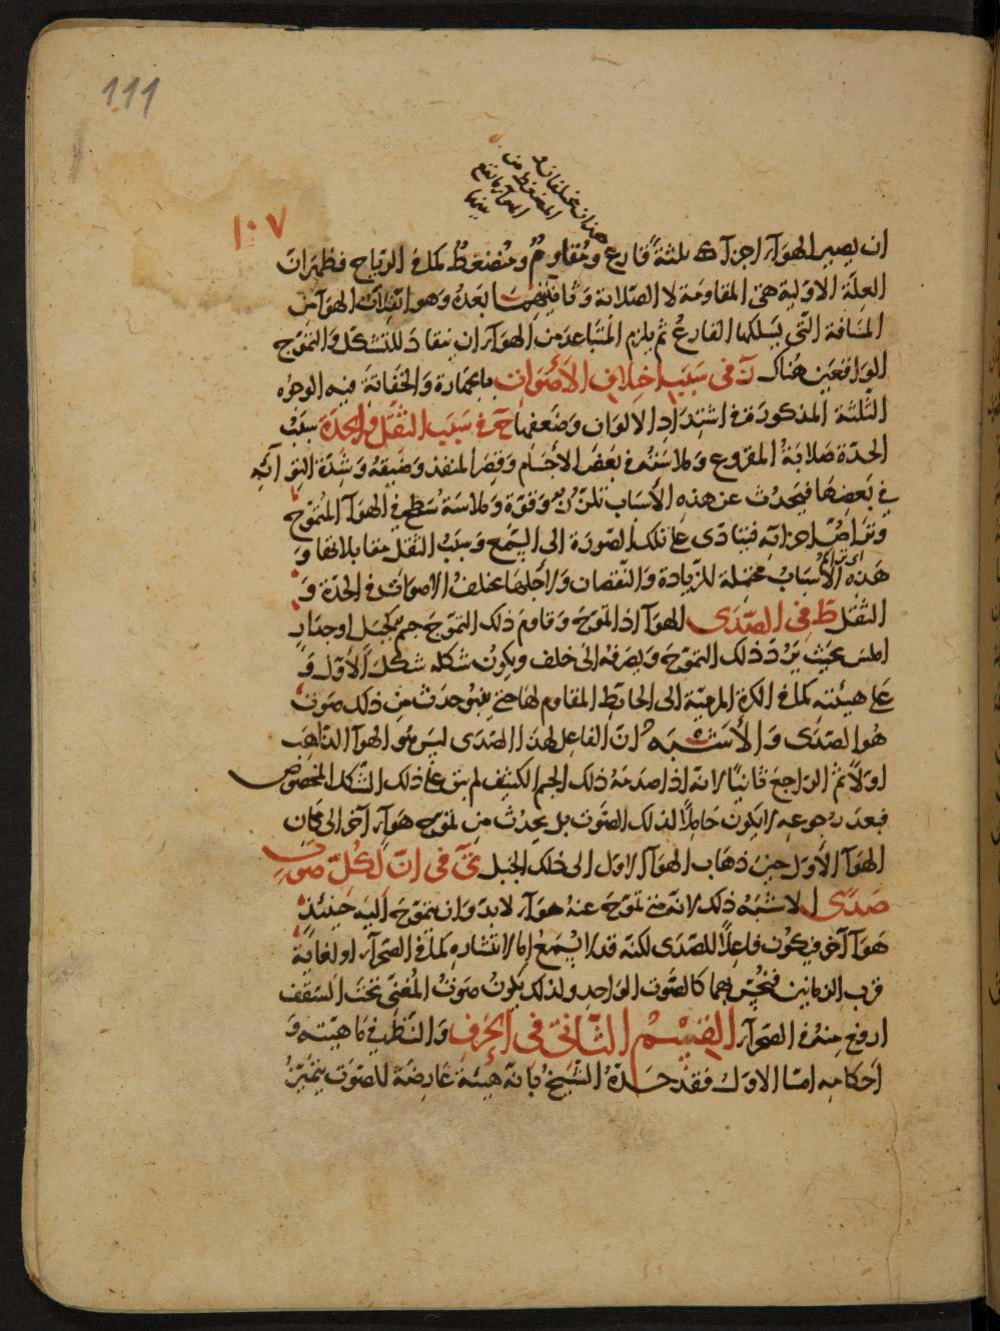 111
١٠٧
ان يصير الهوآء اجزآؤه ثلثةً قارع ومُقاومٌ ومُنضغطٌ كما فى الرياح فظهر انّ
العلّة الاولية هى المقاومة لا الصّلابة وثانيهما بعدهُ وهو انفلات الهوآء من
المسافة التى يسلكها القارعُ ثم يلزم المتباعد من الهوآء ان ينقاد للتشكل والتموّج
الواقعين هناك زَ فى سَبَب اختلاف الأَصوَات بالجهارة والخفاتة فيه الوجوه
الثلثة المذكورة فى اشتداد الالوان وضعفها حَ فى سَبَب الثقل والحدّة سبَبُ
الحدّة صَلابَةُ المقروع وملاستهُ فى بعض الأجسام وقِصَر المنفذ وضيقهُ وشدّة التوآئه
فى بَعضِهَا فيَحدُث عن هذه الأسبَاب تلزّزٌ وقوّة وملاسَة سَطح فى الهوآء المتموّج
وتَرَاصّ اجزائه فيتادّى على تلك الصّورَة الى السّمع وسَبَبُ الثقل مقابلاتها و
هَذه الأَسْبَابُ محتملة للزيادة والنقصان ولاجلهَا يختلفُ الاصوَات فى الحدّة وَ
الثّقل طَ فى الصّدَى الهوآء اذا تموّجَ وقاومَ ذلك التموّجَ جسم كجبَل او جدَارٍ
املسَ بحَيث يَرُدّ ذلك التموّجَ ويَصرفهُ الى خلف ويكونُ شكله شكلَ الأوّل وَ
على هيئتهِ كما فى الكرة المرميّة الى الحائط المقاوم لهَا حتى ينبُو حدَثَ من ذلك صَوتٌ
هُو الصّدَى وَالأَشبَهُ انّ الفاعل لهذا الصّدَى ليسَ هُو الهوآ الذّاهَبَ
اولاً ثمّ الراجعَ ثانيًا لانّه اذا صَدمَهُ ذلك الجرم الكثيف لم يبق على ذلك الشّكل المخصُوص
فبعدَ رُجوعِه لا يكون حَاملًا لذلك الصَّوت بل يحدُث من تموّجه هوآء آخر الى مكان
الهوآ الأَول حينَ ذهَاب الهوآ الاول الى ذلك الجَبل ىَ فى انّ لكُلّ صَوتٍ
صَدًى الاشبَهُ ذلك لانّه متى تموّجَ عنهُ هوآء لا بدّ وان يتموّجَ اليهِ حينئذٍ
هَوآ آخر فيكون فاعِلاً للصّدَى لكنّه قد لا يُسمَعُ إمّا لانتشارهِ كما فى الصّحرآء او لغايَة
قرب الزمانين فيُحَسّ بهما كالصّوت الواحد ولذلك يكونُ صَوتُ المُغنّى تحتَ السّقف
ارفعَ منهُ فى الصّحرآء القِسْمُ الثّانى فى الحَرفِ وَالنّظر فى مَاهيّته وَ
أحكامِه امّا الاوّل فقد حَدّهُ الشّيخُ بانّه هيئة عَارضة للصّوت يتميّزُ